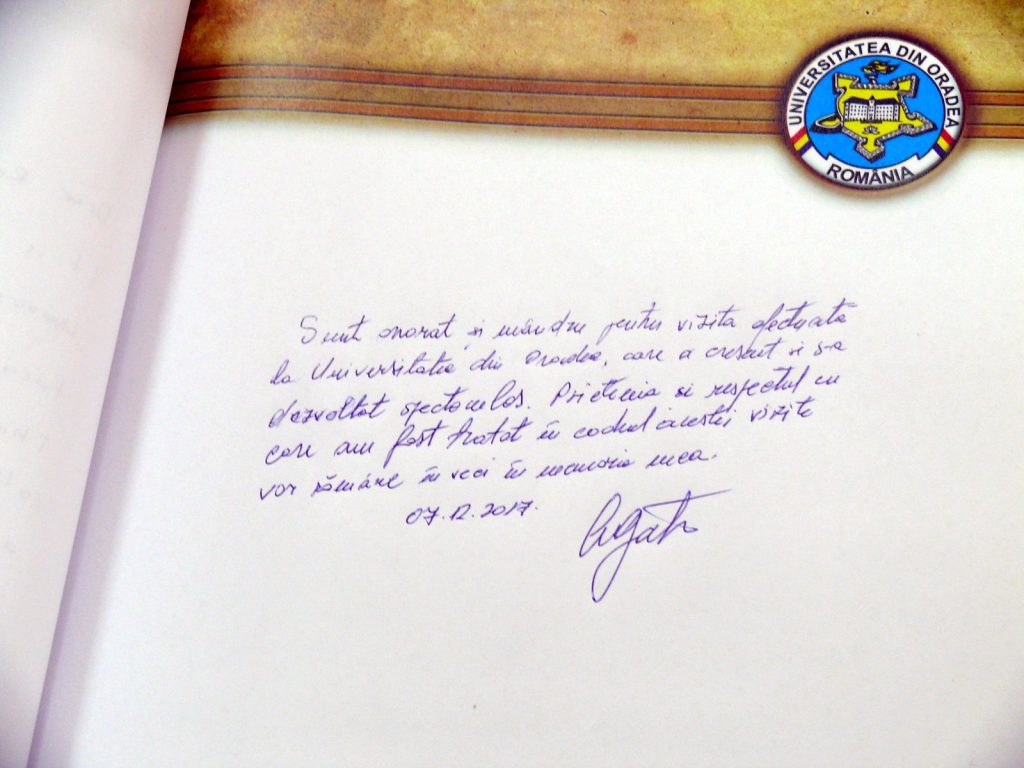 UNIVERSITATEA DIN ORADEA
ROMÂNIA
Sunt onorat și mândru pentru vizita efectuată
la Universitatea din Oradea, care a crescut și s-a
dezvoltat spectoculos. Prietenia si respectul cu
care am fost tratat în cadrul acestei vizite
vor rămâne în veci în memoria mea.
07.12.2017.